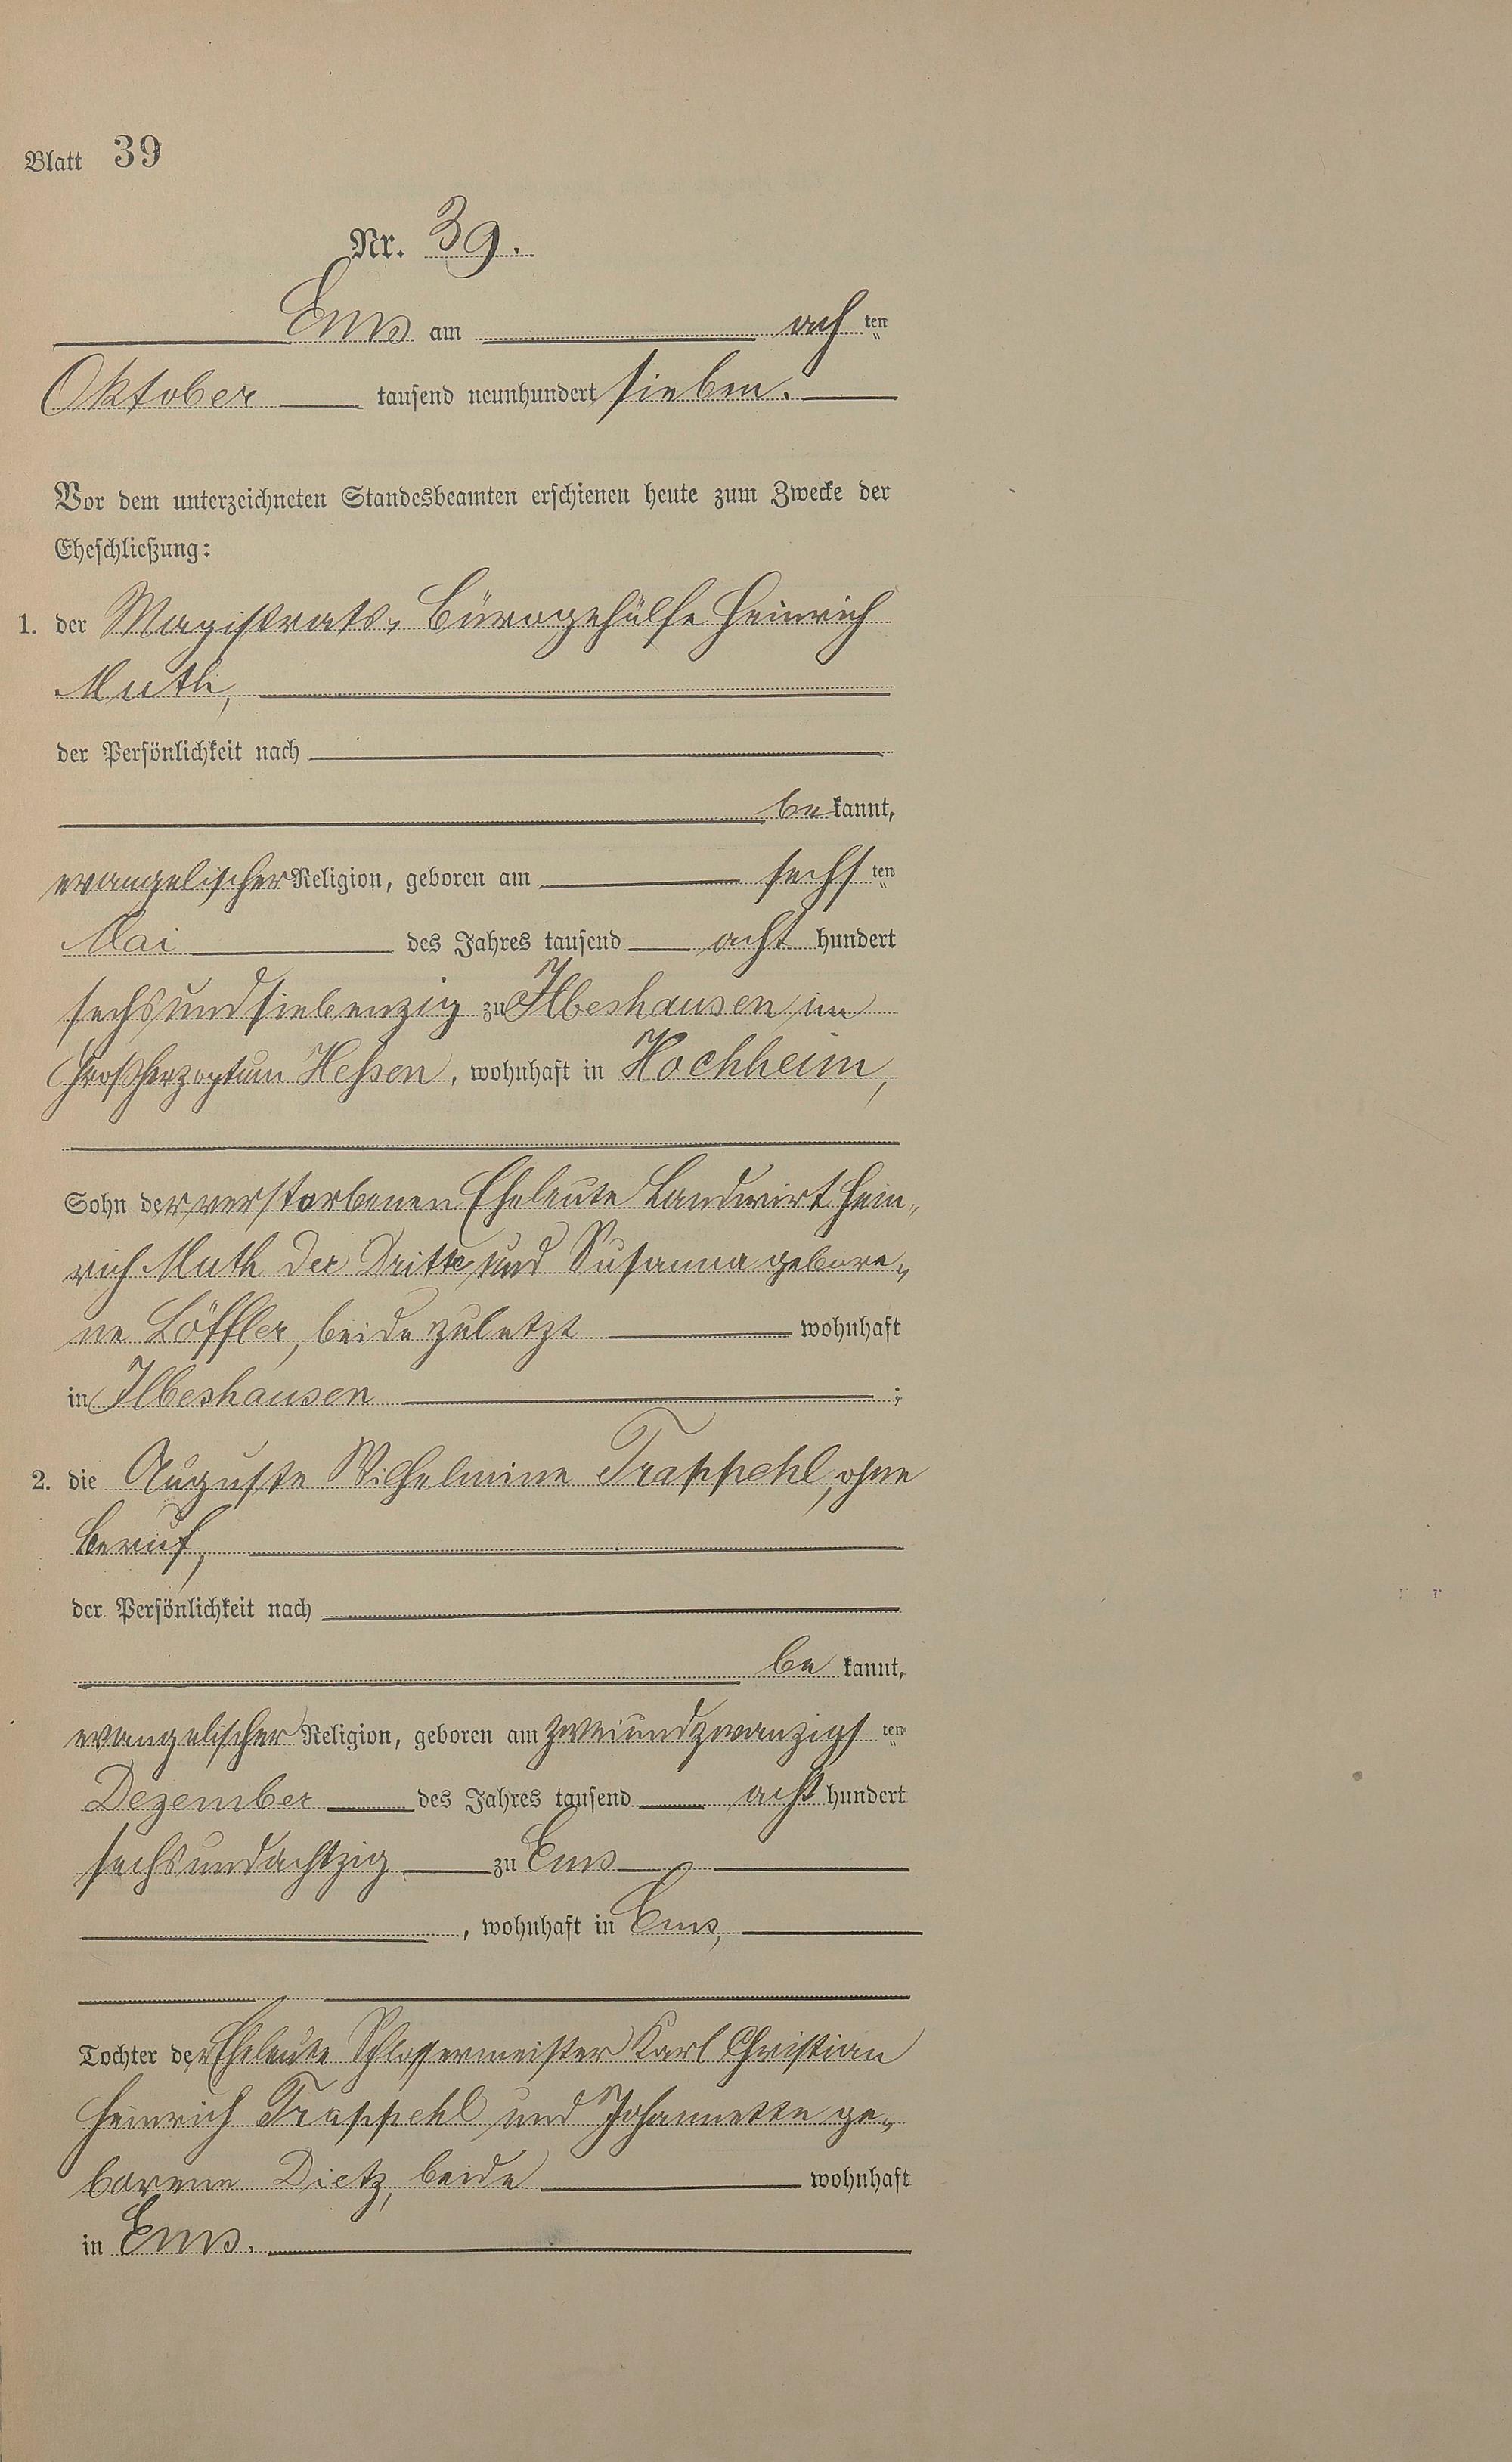 Blatt 39
Nr. 39.
Ems am ach ten
Oktober tausend neunhundert sieben.
Vor dem unterzeichneten Standesbeamten erschienen heute zum Zwecke der
Eheschließung:
1. der Magistrats-Bürogehülfe Heinrich
Muth,
der Persönlichkeit nach
be kannt,
evangelischer Religion, geboren am sechs ten
Mai des Jahres tausend acht hundert
sechsundsiebenzig zu Ilbeshausen im
Großherzogtum Hessen, wohnhaft in Hochheim,
Sohn der verstorbenen Eheleute Landwirt Hein-
rich Muth der Dritte und Susanna gebore-
ne Löffler, beide zuletzt wohnhaft
in Ilbeshausen ;
2. die Auguste Wilhelmine Trappehl, ohne
Beruf,
der Persönlichkeit nach
be kannt,
evangelischer Religion, geboren am zweiundzwanzigs ten
Dezember des Jahres tausend acht hundert
sechsundachtzig zu Ems
, wohnhaft in Ems,
Tochter der Eheleute Schlossermeister Karl Christian
Heinrich Trappehl und Johannette ge-
borene Dietz, beide wohnhaft
in Ems.